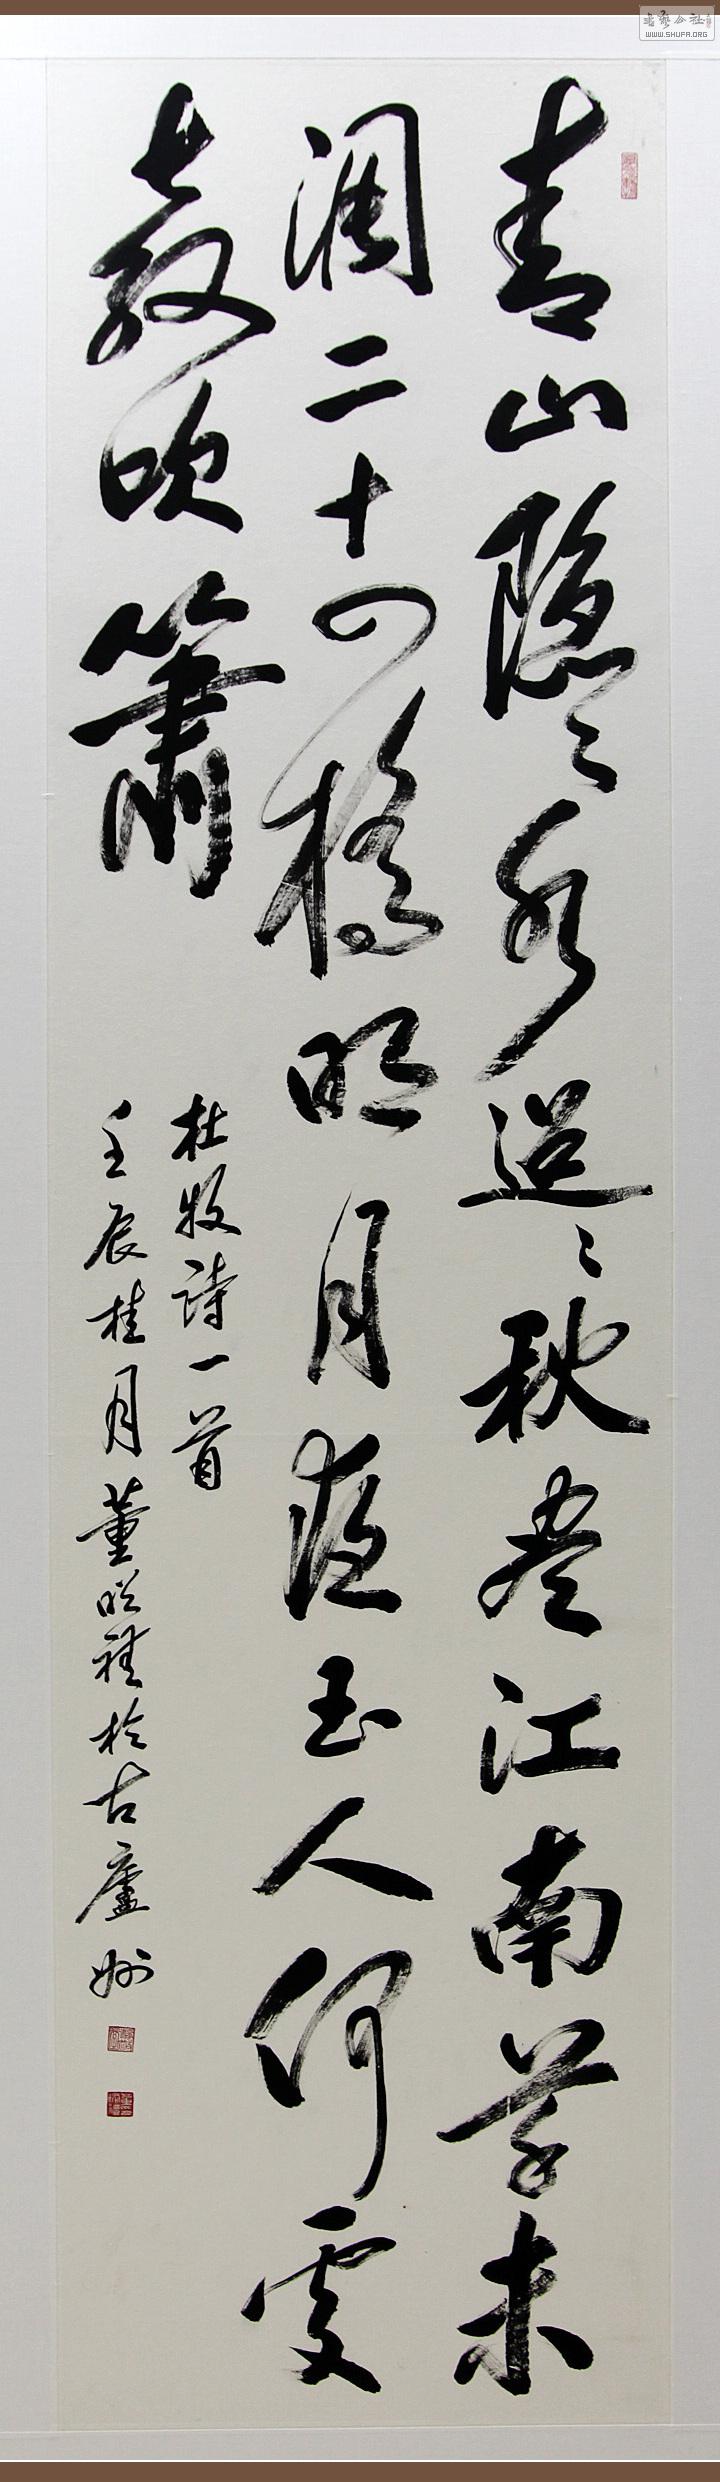 青山隐〻水迢〻秋尽江南草未
凋二十四橋明月夜玉人何處
教吹簫
杜牧詩一首
壬辰桂月董昭禮於古廬州
WWW.SHUFA.ORG